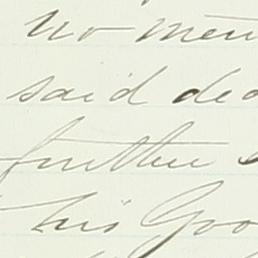 no men
said ded
further
his Goo